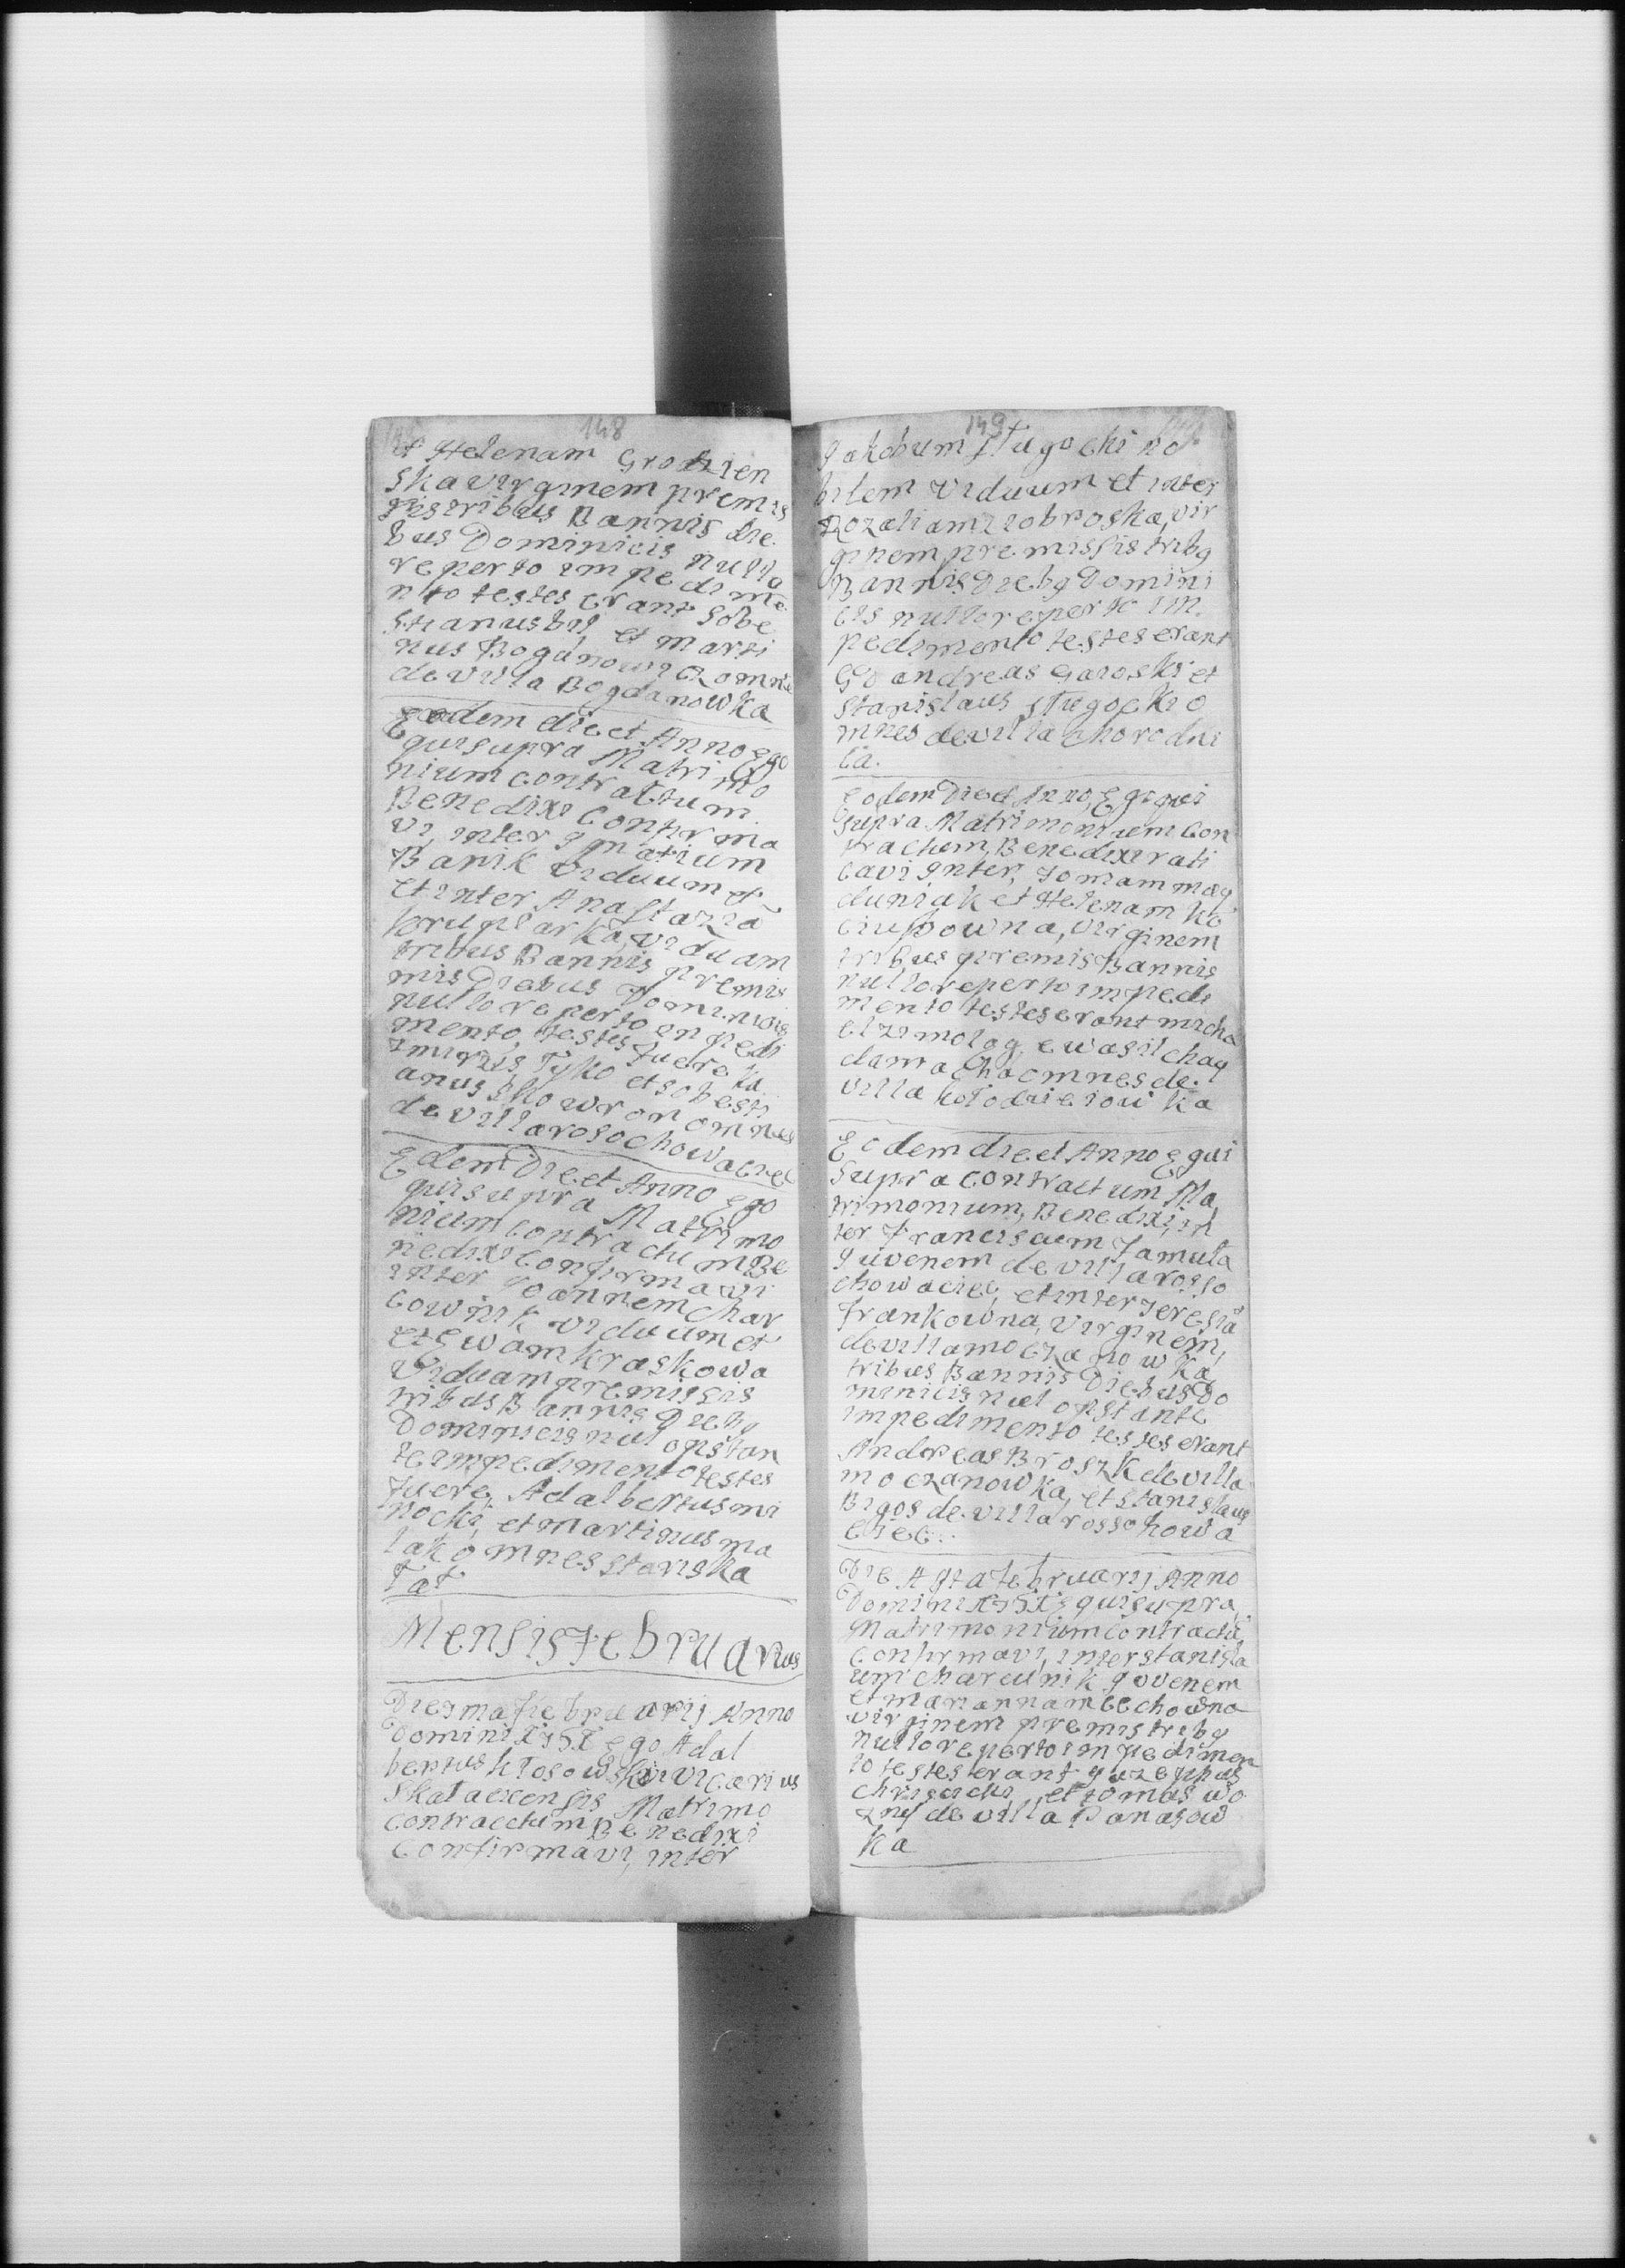 148
et Helenam Grodzien
ska virginem premis
sis tribus Bannis die
bus Dominicis nullo
reperto impedime
nto testes erant Sobe
stianus bil et Marti
nus Bogdnowi Ezomnes
de villa Bogdanowka
Eodem die et Anno Ego
qui supra Matri mo
nium contractum
Benedixi Confirma
vi, inter Ignatium
Banik viduum et
et inter Anastazia
krupiarka, viduam
tribus Bannis premis
mis Diebus Dominicis
nullo reperto inpedi
mento, testes fuere Ka
zmiris Tyko et sobesti
anus skowron omnes
de villa rosochowaciec
Edem Die et Anno Ego
qui supra Matrimo
nium contractum Be
nedixi Confirmavi
inter Joannem char
cownik viduum et
et Ewam kraskowa
viduam premissis
tribus Bannis Diebg
Dominicis nul opstan
te impedimento testes
fuere, Adalbertus mi
nocki, et Martinus ma
lak omnes staniska
Tat
Mensis Februarius
Die sma februarij Anno
Domini ego Adal
bertus klosowski vicarius
Skalacensis Matrimo
contracctum Benedixi
Confirmavi, inter
149
Jakobum slugocki no
bilem viduum et inter
Rozaliam ziobroska, vir
ginem premissis tribg
Bannis Diebg Domini
cis nullo reperto im
pedimento testes erant
Go andreas Garoski et
Stanislaus slugocki o
mnes de villa chorodni
ca.
Eodem Die et Anno, Ego qui
supra Matrimonium Con
tractum, Benedixi rati
cavi inter, Tomam mag
duniak et Helenam ko
ciupowna, virginem
tribus premis Bannis
nullo reperto impedi
mento testes erant micha
el zimolag e wasil chag
dama cha omnes de.
villa kolodzieiowka
Eodem die et Anno E qui
Supra contractum Ma
trimonium, Benedixi, in
ter Franciscum Jamula
Juvenem de villa rosso
chowaciec, et inter Teresia
frankowna, virginem,
de villa moczanowka
tribus Bannis Diebus Do
minicis nul opstante
impedimento testes erant
Andreas Broszk de villa
moczanowka, et Stanislaus
Bigos de villa rossohowa
ciec.
Die Agta februarij Anno
Domini qui supra,
Matrimonium contractu
Confirmavi, inter Stanisla
um charcunik Jovenem
et mariannam cechowna
virginem premis tribg
nullo reperto impedimen
to testes erant Juzephus
chrisicki, et Tomas wo
zny de villa Panasow
ka